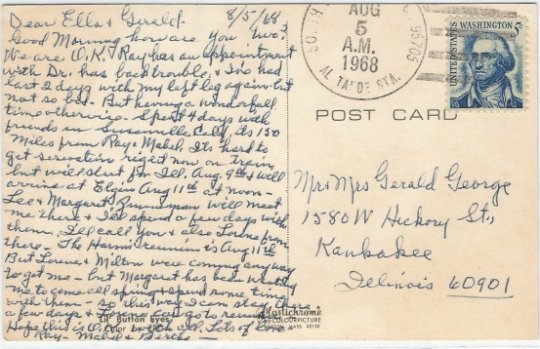 Dear Ella & Gerald. 8/5/68
Good Morning how are you two?
We are O.K. Ray has an appointment
with Dr. has back trouble, & I've had
last 2 days with my left leg again but
not so bad. But having a wonderful
time otherwise. Spent 4 days with
friends in Susanville Calif, its 150
Miles from Ray & Mabel. Its hard to
get reservation right now on train
but will start for Ill. Aug. 9th & will
arrive at Elgin Aug 11th at noon-
Lee & Margaret will meet
me there & I'll spend a few days with
them. I'll call you & also Lorena from
there - The reunion is Aug 11th
But Lorena & Milton were coming anyway
to get me - but Margaret has been wanting
me to come all spring & spend some time
with them - so this way I can stay there
a few days & Lorena can go to reunion
Hope this is O.K. with all. Lots of love
Ray - Mabel &
Button Eyes
Color by
Plastichrome
COLOURPICTURE
POST CARD
AUG
5
A.M.
1968
AL TAHOE STA.
95705
UNITED STATES
WASHINGTON
5c
Mr & Mrs Gerald George
1580 W Hickory St.,
Kankakee
Illinois 60901